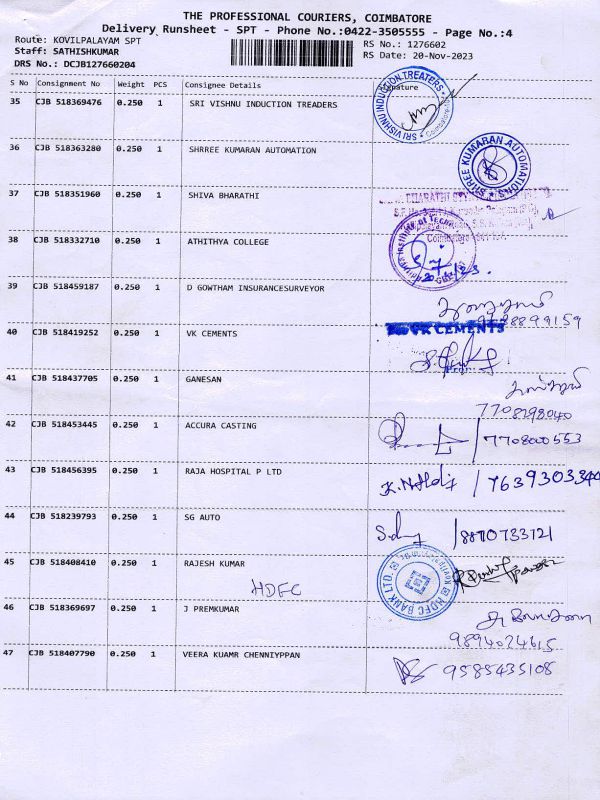 THE PROFESSIONAL COURIERS, COIMBATORE
Delivery Runsheet - SPT - Phone No.:0422-3505555 - Page No.:4
Route: KOVILPALAYAM SPT
RS No.: 1276602
Staff: SATHISHKUMAR
RS Date: 20-Nov-2023
DRS No.: DCJB127660204
S No Consignment No Weight PCS Consignee Details Signature
35 CJB 518369476 0.250 1 SRI VISHNU INDUCTION TREADERS
SRI VISHNU INDUCTION TREATERS
36 CJB 518363280 0.250 1 SHRREE KUMARAN AUTOMATION
SHREE KUMARAN AUTOMATIONS
37 CJB 518351960 0.250 1 SHIVA BHARATHI
38 CJB 518332710 0.250 1 ATHITHYA COLLEGE
39 CJB 518459187 0.250 1 D GOWTHAM INSURANCESURVEYOR
40 CJB 518419252 0.250 1 VK CEMENTS
VK CEMENTS
41 CJB 518437705 0.250 1 GANESAN
7708198040
42 CJB 518453445 0.250 1 ACCURA CASTING
7708000553
43 CJB 518456395 0.250 1 RAJA HOSPITAL P LTD
7639303340
44 CJB 518239793 0.250 1 SG AUTO
8870733721
45 CJB 518408410 0.250 1 RAJESH KUMAR
HDFC
HDFC BANK LTD.
46 CJB 518369697 0.250 1 J PREMKUMAR
9894024615
47 CJB 518407790 0.250 1 VEERA KUAMR CHENNIYPPAN
9585435108